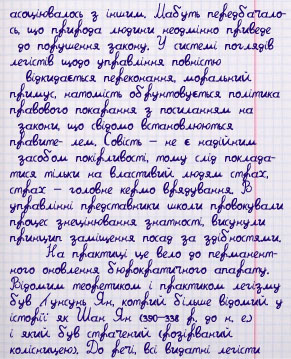 асоціювалось з іншим. Мабуть передбачало-
сь, що природа людини неодмінно приведе
до порушення закону. У системі поглядів
легістів щодо управління повністю
відкидається переконання, моральний
примус, натомість обґрунтовується політика
правового покарання з посиланням на
закони, що свідомо встановлюються
правите- лем. Совість – не є надійним
засобом покірливості, тому слід поклада-
тися тільки на властивий людям страх,
страх – головне кермо врядування. В
управлінні представники школи провокували
процес знецінювання знатності, висунули
принцип заміщення посад за здібностями.
На практиці це вело до перманент-
ного оновлення бюрократичного апарату.
Відомим теоретиком і практиком легізму
був Гунсунь Ян, котрий більше відомий у
історії як Шан Ян (390–338 р. до н. е)
і який був страчений (розірваний
колісницею). До речі, всі видатні легісти